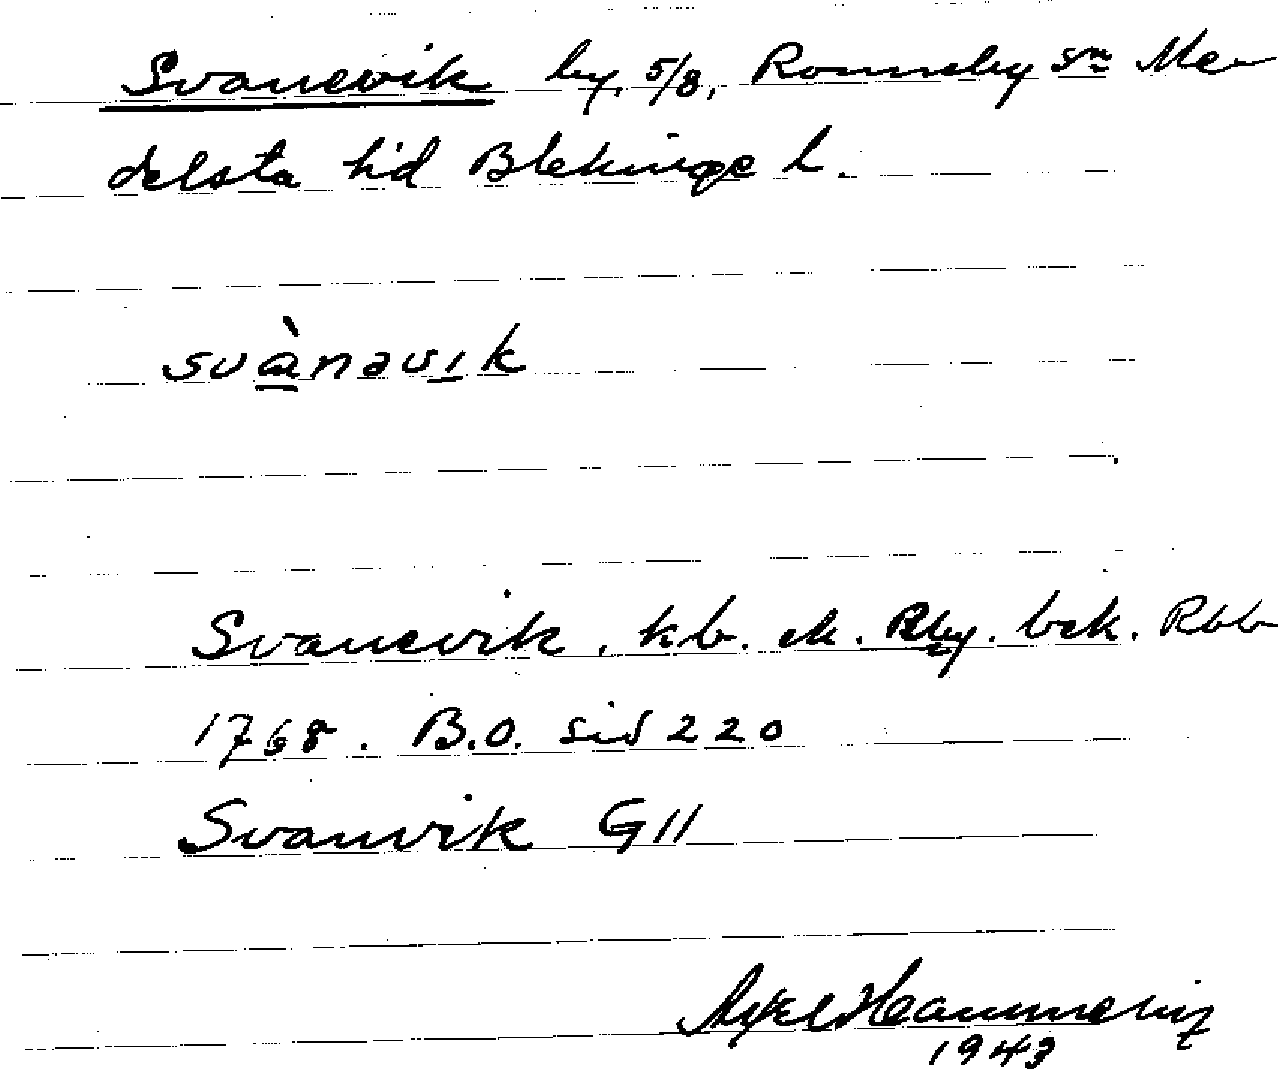 Svanevik by, 5/8, Ronneby sn Me-
delsta h'd Blekinge l.
svànavik
Svanevik, kb. ek. Rby. bck. Rbb
1768. B.O. sid 220
Svanvik G11
Axel Hammering
1943